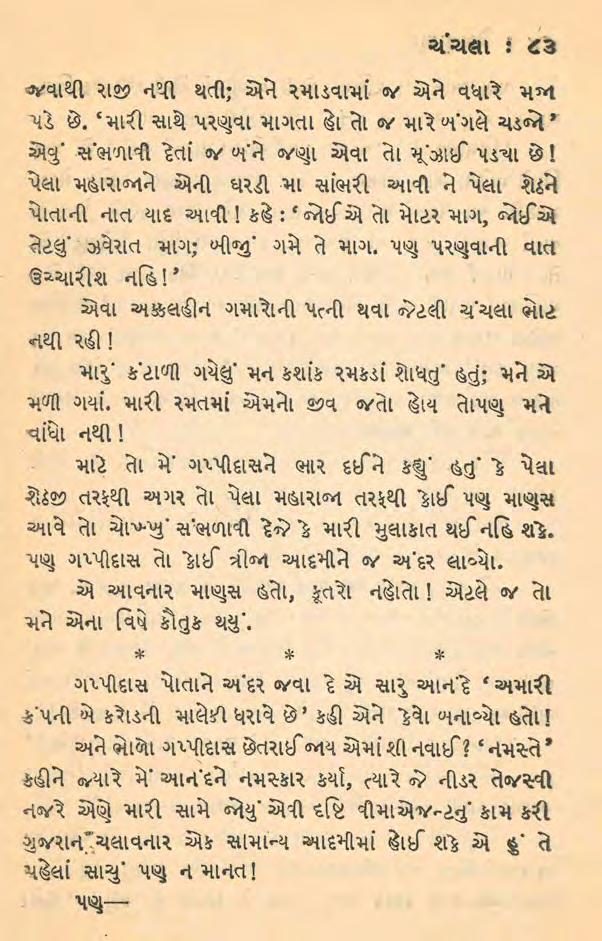 ચંચલા : ૮૩
જવાથી રાજી નથી થતી; એને રમાડવામાં જ એને વધારે મજા
પડે છે. ‘મારી સાથે પરણવા માગતા હો તો જ મારે બંગલે ચડજો’
એવું સંભળાવી દેતાં જ બંને જણા એવા તો મૂંઝાઈ પડ્યા છે!
પેલા મહારાજાને એની ઘરડી મા સાંભરી આવી ને પેલા શેઠને
પોતાની નાત યાદ આવી! કહે : ‘જોઈએ તો મોટર માગ, જોઈએ
તેટલું ઝવેરાત માગ; બીજું ગમે તે માગ. પણ પરણવાની વાત
ઉચ્ચારીશ નહિ!’
એવા અક્કલહીન ગમારોની પત્ની થવા જેટલી ચંચલા ભોટ
નથી રહી!
મારું કંટાળી ગયેલું મન કશાંક રમકડાં શોધતું હતું; મને એ
મળી ગયાં. મારી રમતમાં એમનો જીવ જતો હોય તોપણ મને
વાંધો નથી!
માટે તો મેં ગપ્પીદાસને ભાર દઈને કહ્યું હતું કે પેલા
શેઠજી તરફથી અગર તો પેલા મહારાજા તરફથી કોઈ પણ માણસ
આવે તો ચોખ્ખું સંભળાવી દેજે કે મારી મુલાકાત થઈ નહિ શકે.
પણ ગપ્પીદાસ તો કોઈ ત્રીજા આદમીને જ અંદર લાવ્યો.
એ આવનાર માણસ હતો, કૂતરો નહોતો! એટલે જ તો
મને એના વિષે કૌતુક થયું.
* * *
ગપ્પીદાસ પોતાને અંદર જવા દે એ સારુ આનંદે ‘અમારી
કંપની બે કરોડની માલેકી ધરાવે છે’ કહી એને કેવો બનાવ્યો હતો!
અને ભોળો ગપ્પીદાસ છેતરાઈ જાય એમાં શી નવાઈ? ‘નમસ્તે’
કહીને જ્યારે મેં આનંદને નમસ્કાર કર્યા, ત્યારે જે નીડર તેજસ્વી
નજરે એણે મારી સામે જોયું એવી દૃષ્ટિ વીમાએજન્ટનું કામ કરી
ગુજરાન ચલાવનાર એક સામાન્ય આદમીમાં હોઈ શકે એ હું તે
પહેલાં સાચું પણ ન માનત!
પણ—